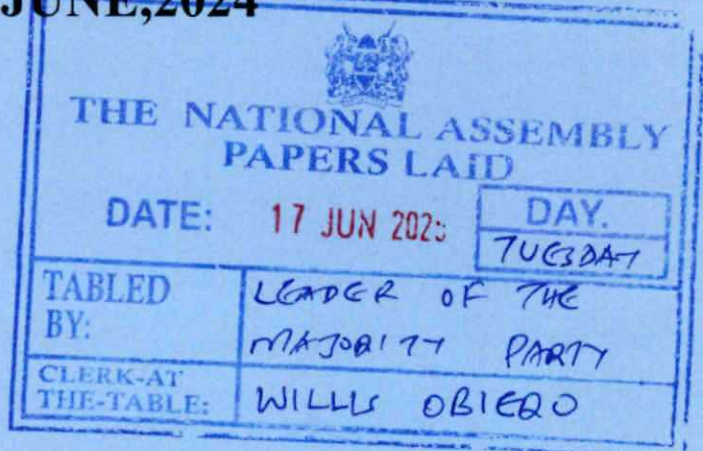 JUNE,2024
THE NATIONAL ASSEMBLY
PAPERS LAID
DATE: 17 JUN 2025 DAY.
TUESDAY
TABLED BY: LEADER OF THE
MAJORITY PARTY
CLERK-AT
THE-TABLE: WILLIS OBIERO